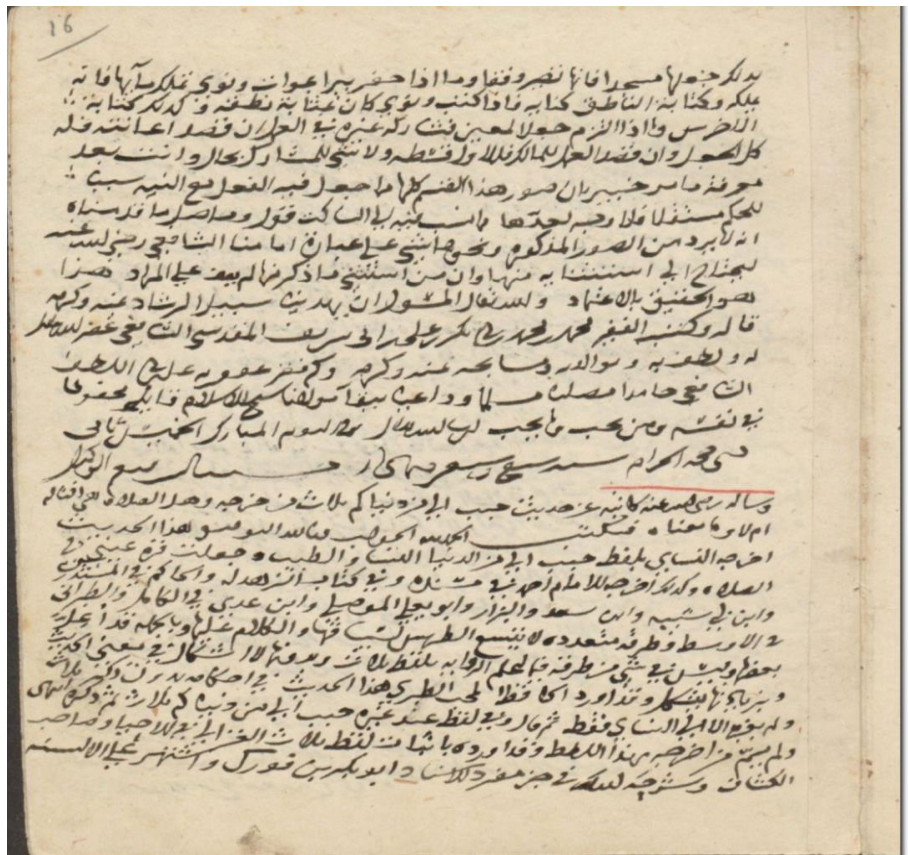 16
بذلك جعلها مسجدا فانها تصير وقفا وما اذا حفر بيرا بموات ونوى تملك مآيها فانه
يملكه وكتابة الناطق كناية فاذا كتب ونوى كان بمثابة نطقه وكذلك كتابة
الاخرس واذا التزم جعلا لمعين فشاركه غيره في العمل ان قصد اعانته فله
كل الجعل وان قصد العمل للمالك فللاول قسطه ولا شئ للمشارك بحال وانت بعد
معرفة ما مر خبير بان صور هذا القسم كلها ما جعل فيه الفعل مع النية سببا
للحكم مستقلا فلا وجه لعدها مما نسب فيه الى الساكت قول وحاصل ما قدمناه
انه لا يرد من الصور المذكورة ونحوها شئ على عبارة امامنا الشافعي رضي الله عنه
ليحتاج الى استثنائه منها وان من استثنى ما ذكر منها لم يقف على المراد هذا
هو الحقيق بالاعتماد والله تعالى المسئول ان يهدينا سبيل الرشاد بمنه وكرمه
قاله وكتبه الفقير محمد بن محمد بن ابي بكر بن علي بن ابي شريف المقدسي الشافعي غفر الله تعالى
له ولطف به وبوالديه وسامحه بمنه وكرمه
الشافعي حامدا مصليا مسلما وداعيا ببقاء مولانا شيخ الاسلام محفوظا
في نفسه ومن يحب وما يحب اليوم المبارك الخميس ثاني
شهر محرم الحرام سنة
وساله رضي الله عنه كاتبه عن حديث حبب الي من دنياكم ثلاث من خرجه وهل الصلاة
ام لا وما معناه فكتب الحمد لله الجواب هذا الحديث
اخرجه النسائي بلفظ حبب الي من الدنيا النساء والطيب وجعلت قرة عيني في
الصلاة وكذلك اخرجه الامام احمد في مسنده وفي كتاب الزهد له والحاكم في المستدرك
وابن ابي شيبة وابن سعد والبزار وابو يعلى الموصلي وابن عدي في الكامل والطبراني
في الاوسط وطرقه متعددة لا يتسع الكلام عليها
بعضها وليس في شئ من طرقه فيما نعلم الرواية بلفظ ثلاث وبدونها لا اشكال في معنى الحديث
وبزيادتها يشكل وقد اورد الحافظ المحب الطبري هذا الحديث في احكامه بدون ذكر ثلاث
ولم يعزه الا الى النسائي فقط ثم قال وفي لفظ عند غيره حبب الي من دنياكم ثلاث ثم ذكره انتهى
ولم يبين من اخرجه بهذا اللفظ وقد اورده باثبات لفظ ثلاث الغزالي في الاحيا وصاحب
الكشاف وشرحه كذلك في جزء مفرد الاستاد ابو بكر بن فورك واشتهر على الالسنة